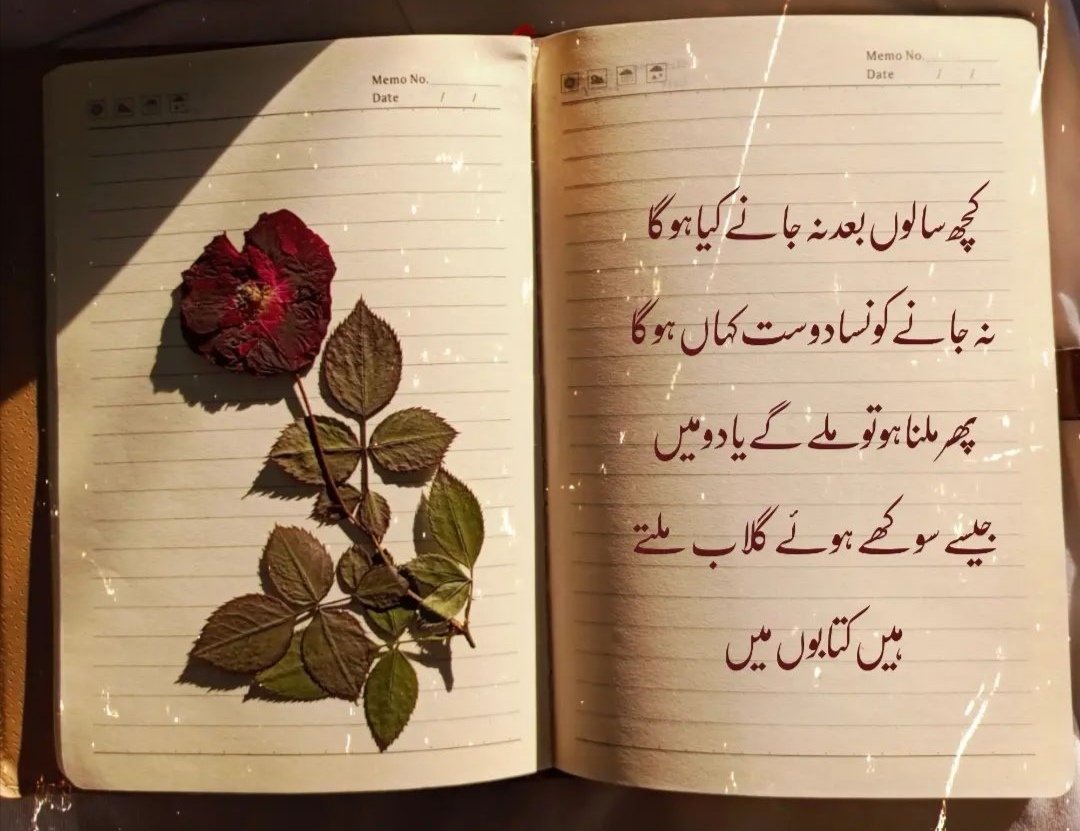 Memo No.
Date / /
Memo No.
Date / /
کچھ سالوں بعد نہ جانے کیا ہو گا
نہ جانے کونسا دوست کہاں ہو گا
پھر ملنا ہو تو ملے گے یادو میں
جیسے سوکھے ہوئے گلاب ملتے
ہیں کتابوں میں